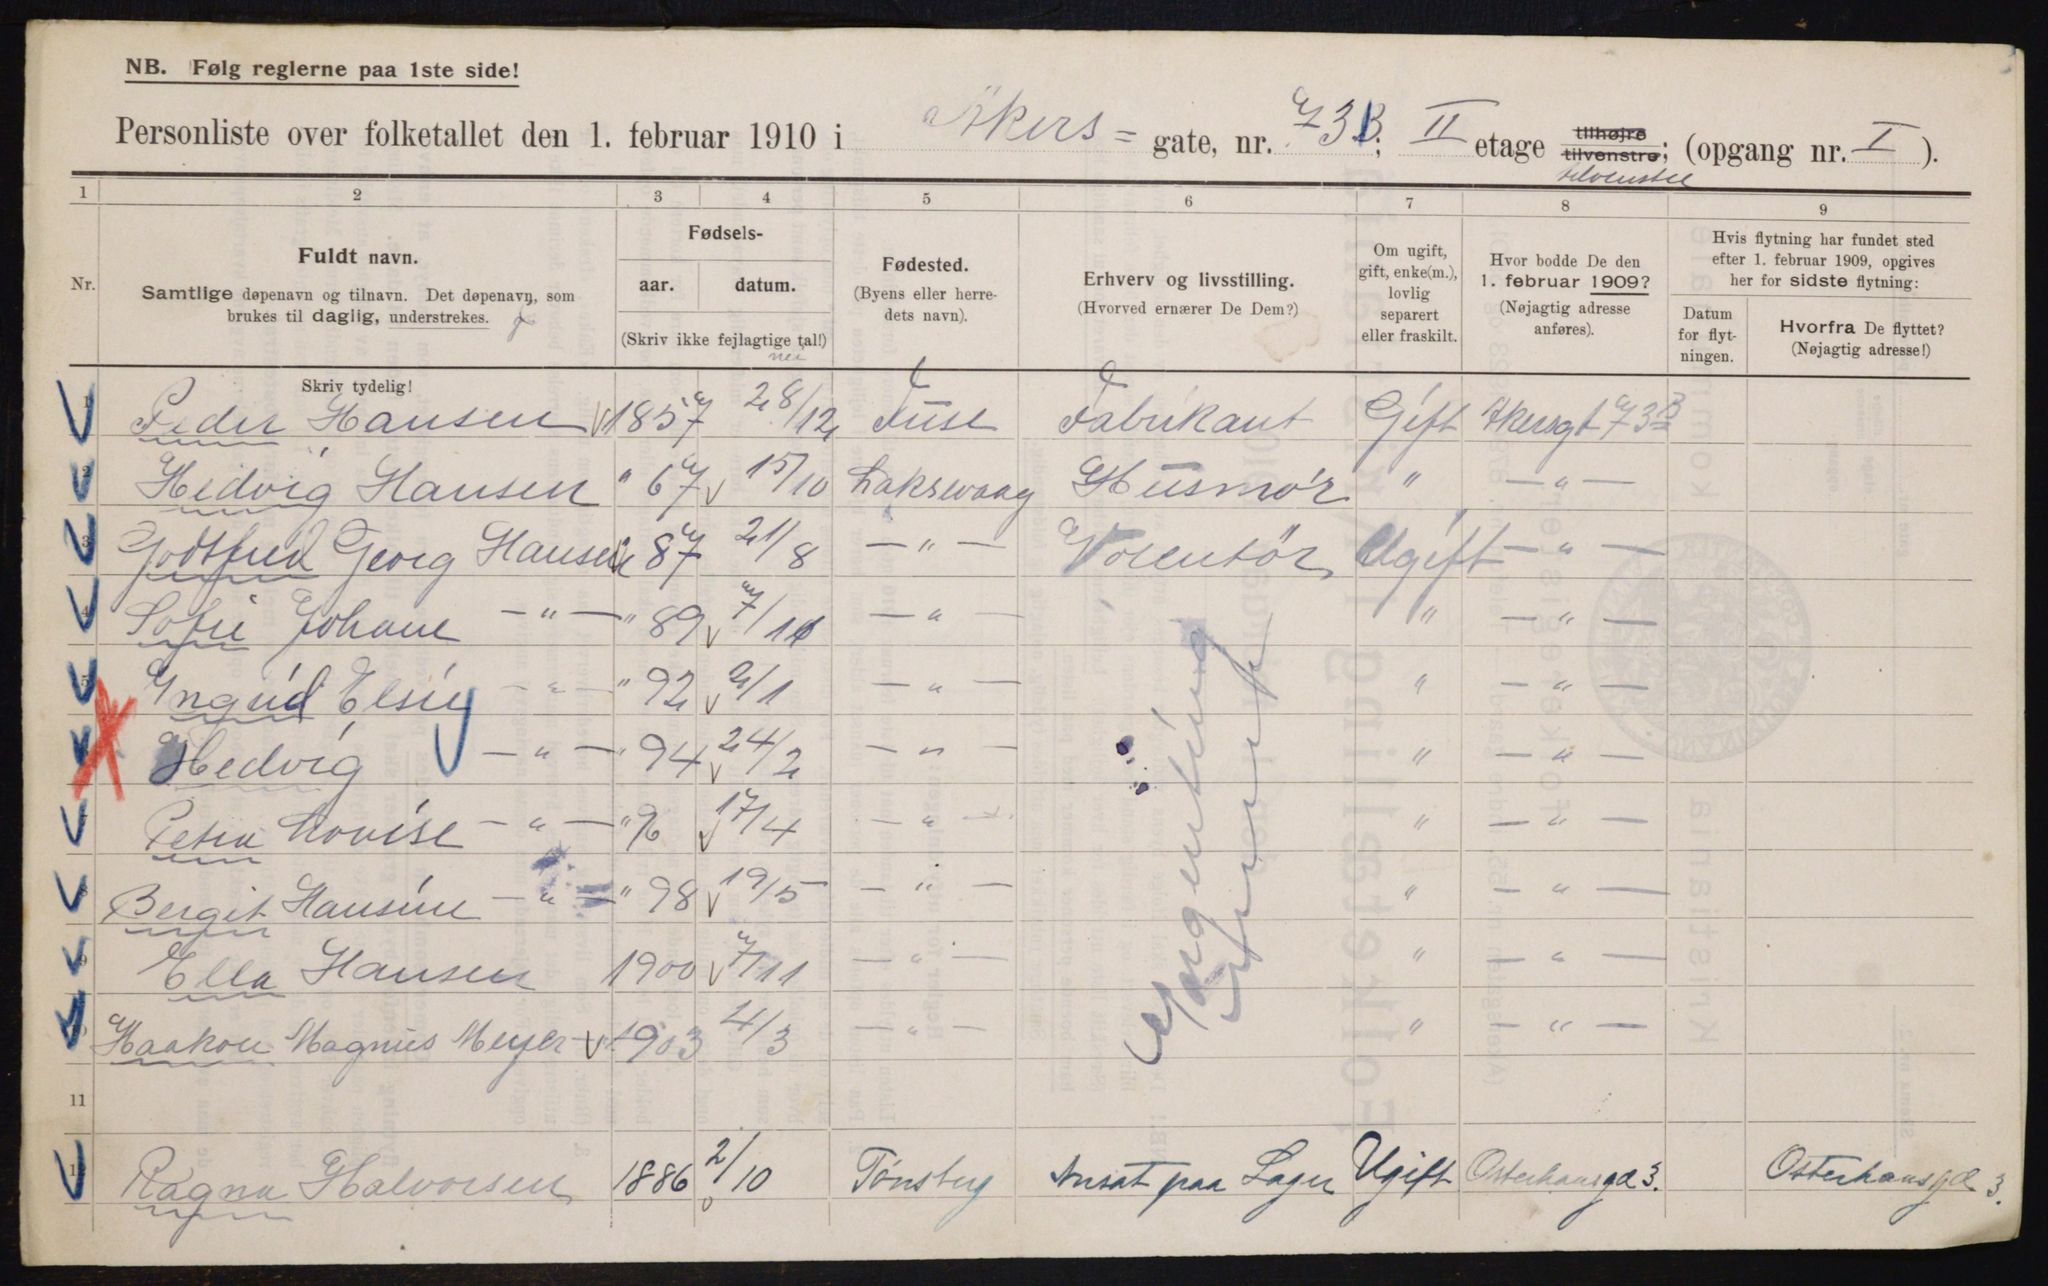 NB. Følg reglerne paa 1ste side!
Personliste over folketallet den 1. februar 1910 i Akers = gate, nr. 73B; II etage tilhøjre tilvenstre; (opgang nr. I ).
tilvenstre
1 2 3 4 5 6 7 8 9
Nr.
Fuldt navn.
Samtlige døpenavn og tilnavn. Det døpenavn, som
brukes til daglig, understrekes.
Skriv tydelig!
Fødsels-
aar. datum.
(Skriv ikke fejlagtige tal!)
nei
Fødested.
(Byens eller herre-
dets navn).
Erhverv og livsstilling.
(Hvorved ernærer De Dem?)
Om ugift,
gift, enke(m.),
lovlig
separert
eller fraskilt.
Hvor bodde De den
1. februar 1909?
(Nøjagtig adresse
anføres).
Hvis flytning har fundet sted
efter 1. februar 1909, opgives
her for sidste flytning:
Datum
for flyt-
ningen.
Hvorfra De flyttet?
(Nøjagtig adresse!)
1 Peder Hansen 1857 28/12 Fuse Fabrikant Gift Akersgt 73B
2 Hedvig Hansen " 67 15/10 Lakswaag Husmor " — " —
3 Godtfred Georg Hansen " 87 21/8 — " — Volentør Ugift — " —
4 Sofie Johane — " — " 89 7/11 — " — " — " —
5 Yngrid Elsig — " — " 92 2/1 — " — " — " —
6 Hedvig — " — " 94 24/2 — " — " — " —
7 Petra Lovise — " — " 96 17/4 — " — " — " —
8 Bergit Hansine — " — " 98 19/5 — " — " — " —
9 Ella Hansen 1900 7/11 — " — " — " —
10 Haakon Magnus Meyer 1903 4/3 — " — " — " —
Yngenting
11
12 Ragna Halvorsen 1886 2/10 Tønsberg Ansat paa Lager Ugift Osterhausgd 3. Osterhausgd 3.